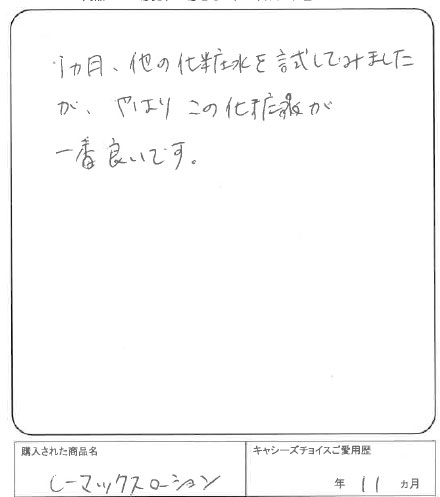 1カ月、他の化粧水を試してみました
が、やはりこの化粧液が
一番良いです。
購入された商品名
キャシーズチョイスご愛用歴
Lーマックスローション
年 11 ヵ月